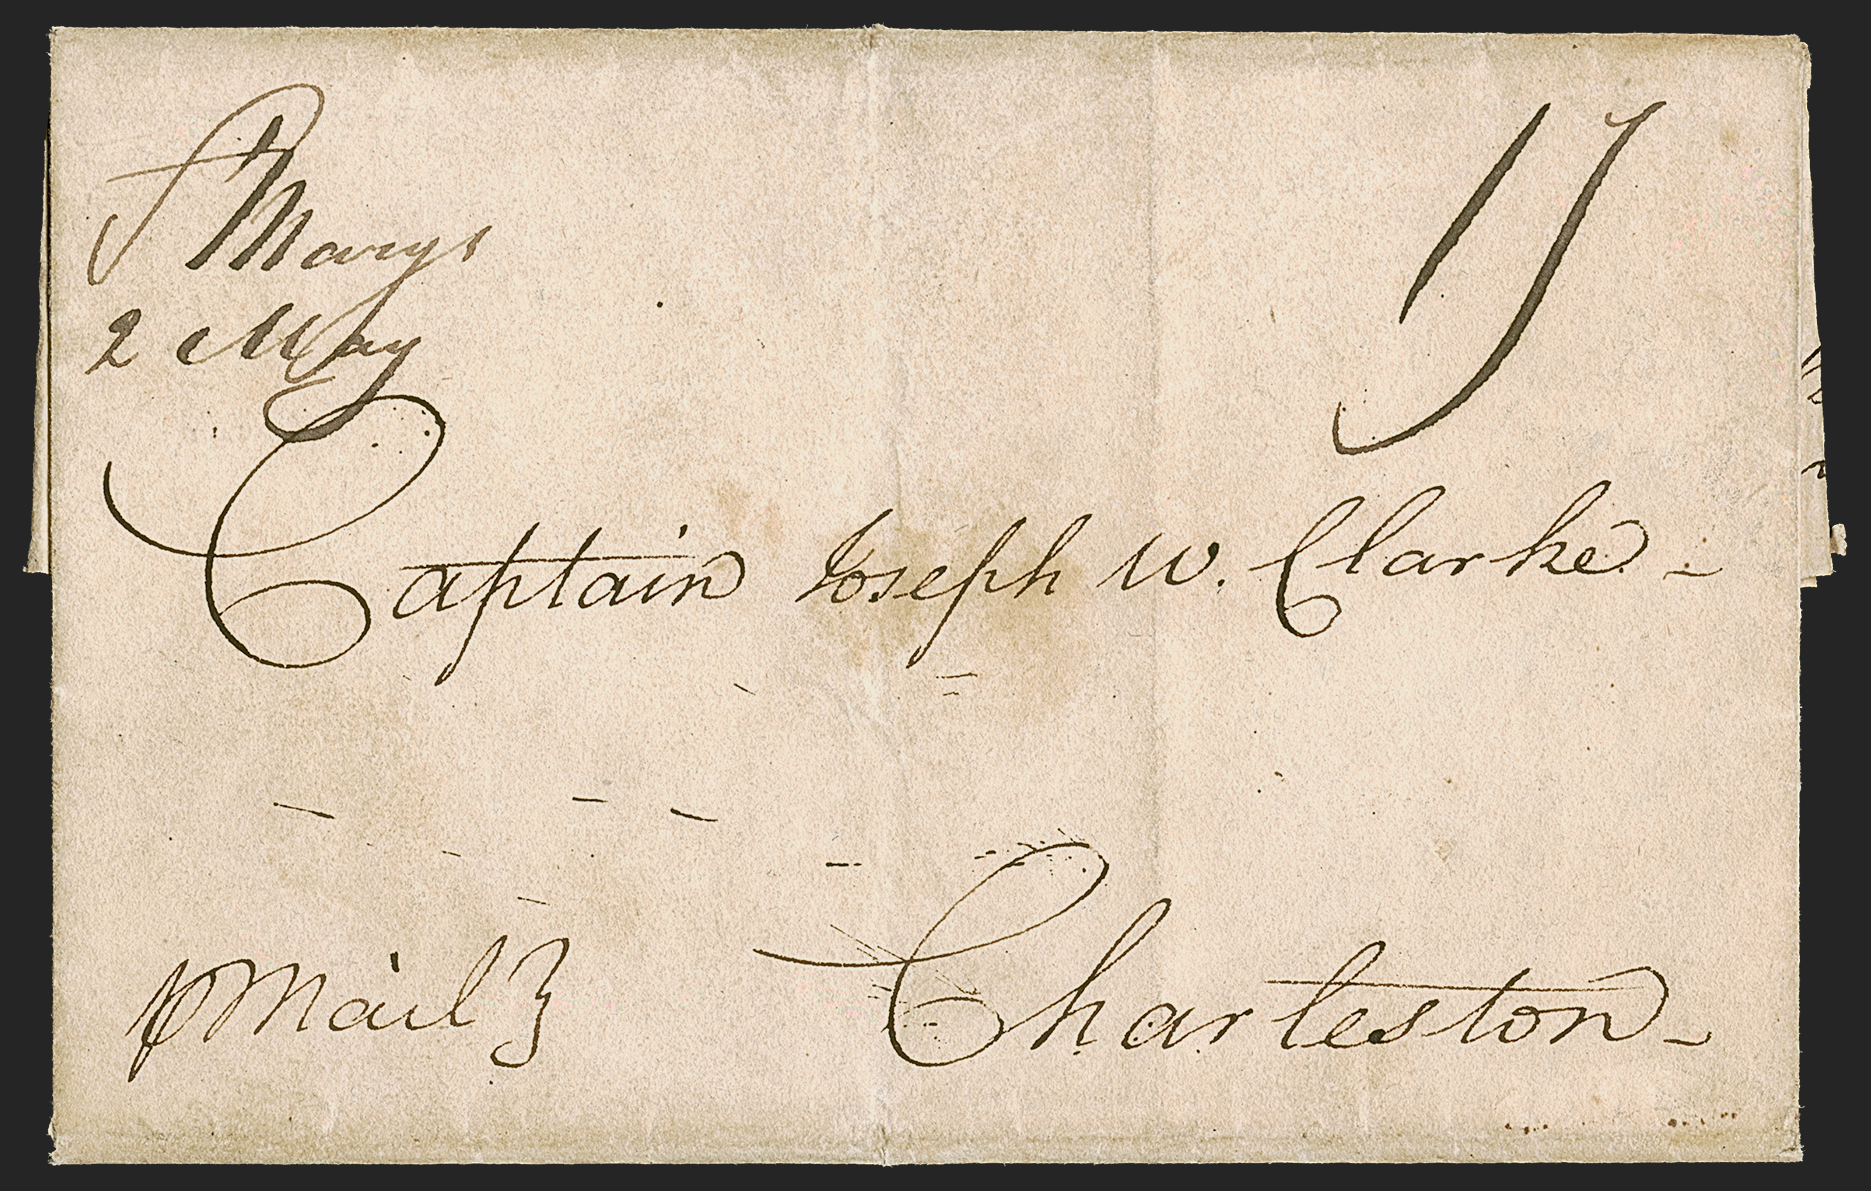 St Marys
2 May
17
Captain Joseph W. Clarke -
Charleston -
p Mail